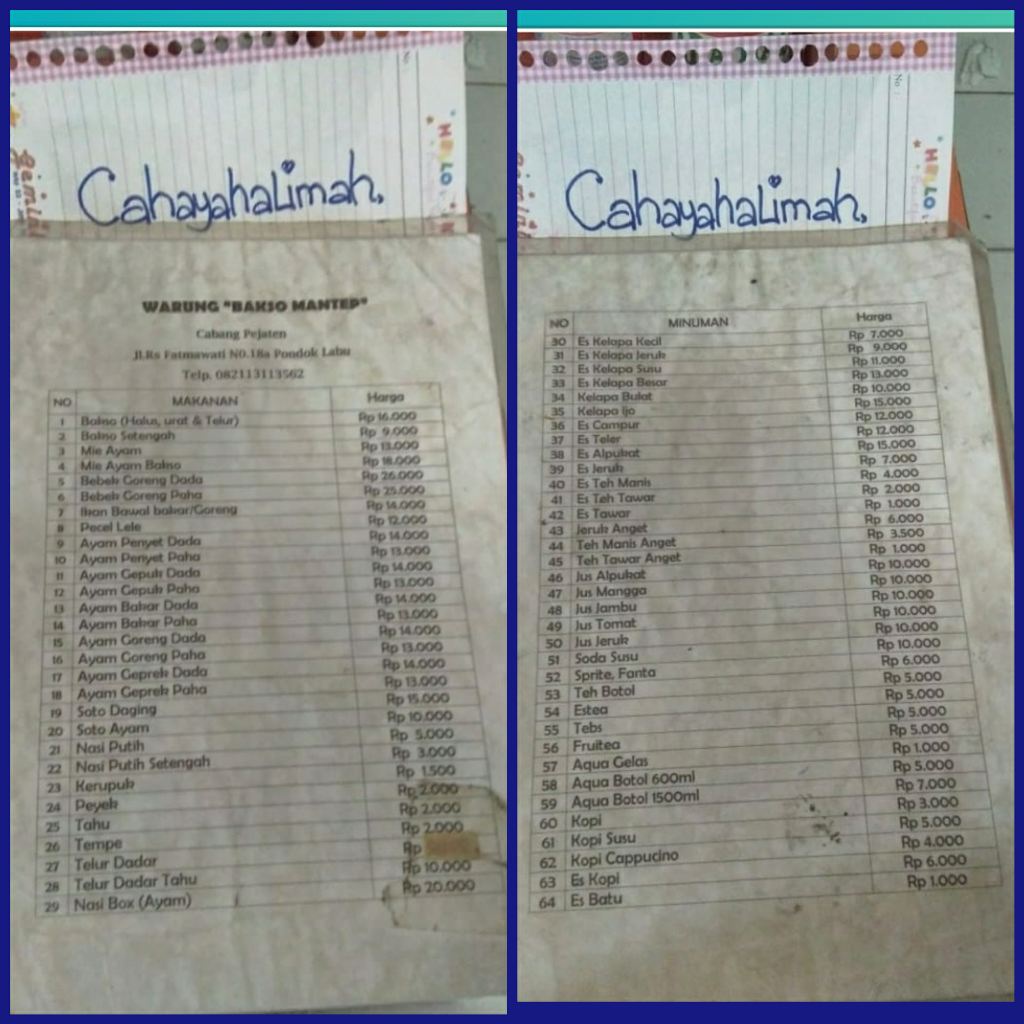 HELLO
Cahayahalimah.
WARUNG "BAKSO MANTEP"
Cabang Pejaten
Jl.Rs Fatmawati N0.18a Pondok Labu
Telp. 082113113562
NO MAKANAN Harga
1 Bakso (Halus, urat & Telur) Rp 16.000
2 Bakso Setengah Rp 9.000
3 Mie Ayam Rp 13.000
4 Mie Ayam Bakso Rp 18.000
5 Bebek Goreng Dada Rp 26.000
6 Bebek Goreng Paha Rp 25.000
7 Ikan Bawal bakar/Goreng Rp 14.000
8 Pecel Lele Rp 12.000
9 Ayam Penyet Dada Rp 14.000
10 Ayam Penyet Paha Rp 13.000
11 Ayam Gepuk Dada Rp 14.000
12 Ayam Gepuk Paha Rp 13.000
13 Ayam Bakar Dada Rp 14.000
14 Ayam Bakar Paha Rp 13.000
15 Ayam Goreng Dada Rp 14.000
16 Ayam Goreng Paha Rp 13.000
17 Ayam Geprek Dada Rp 14.000
18 Ayam Geprek Paha Rp 13.000
19 Soto Daging Rp 15.000
20 Soto Ayam Rp 10.000
21 Nasi Putih Rp 5.000
22 Nasi Putih Setengah Rp 3.000
23 Kerupuk Rp 1.500
24 Peyek Rp 2.000
25 Tahu Rp 2.000
26 Tempe Rp 2.000
27 Telur Dadar Rp
28 Telur Dadar Tahu Rp 10.000
29 Nasi Box (Ayam) Rp 20.000
No :
HELLO
Cahayahalimah.
NO MINUMAN Harga
30 Es Kelapa Kecil Rp 7.000
31 Es Kelapa Jeruk Rp 9.000
32 Es Kelapa Susu Rp 11.000
33 Es Kelapa Besar Rp 13.000
34 Kelapa Bulat Rp 10.000
35 Kelapa Ijo Rp 15.000
36 Es Campur Rp 12.000
37 Es Teler Rp 12.000
38 Es Alpukat Rp 15.000
39 Es Jeruk Rp 7.000
40 Es Teh Manis Rp 4.000
41 Es Teh Tawar Rp 2.000
42 Es Tawar Rp 1.000
43 Jeruk Anget Rp 6.000
44 Teh Manis Anget Rp 3.500
45 Teh Tawar Anget Rp 1.000
46 Jus Alpukat Rp 10.000
47 Jus Mangga Rp 10.000
48 Jus Jambu Rp 10.000
49 Jus Tomat Rp 10.000
50 Jus Jeruk Rp 10.000
51 Soda Susu Rp 10.000
52 Sprite, Fanta Rp 6.000
53 Teh Botol Rp 5.000
54 Estea Rp 5.000
55 Tebs Rp 5.000
56 Fruitea Rp 5.000
57 Aqua Gelas Rp 1.000
58 Aqua Botol 600ml Rp 5.000
59 Aqua Botol 1500ml Rp 7.000
60 Kopi Rp 3.000
61 Kopi Susu Rp 5.000
62 Kopi Cappucino Rp 4.000
63 Es Kopi Rp 6.000
64 Es Batu Rp 1.000